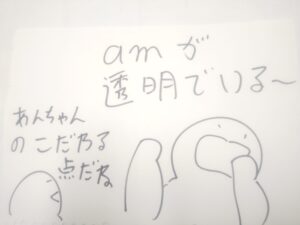 amが
透明でいる〜
あんちゃん
のこだわる
点だね